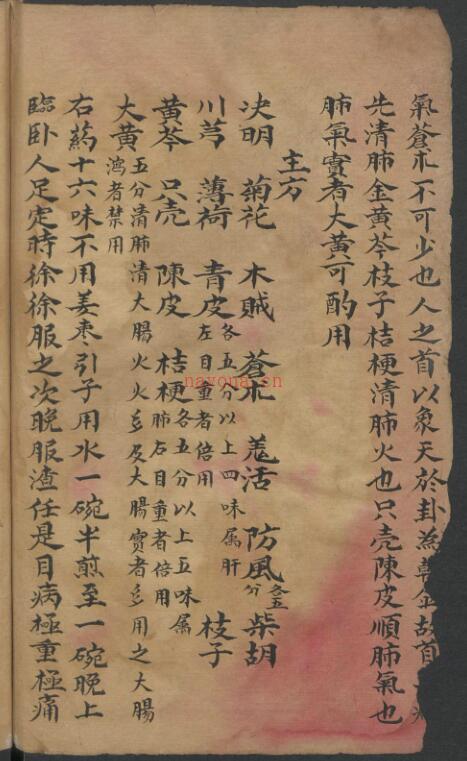 氣蒼朮不可少也人之首以象天於卦為乾金故首
先清肺金黄芩枝子桔梗清肺火也只壳陳皮順肺氣也
肺氣實者大黄可酌用
主方
决明 菊花 木賊 蒼朮 羗活 防風 柴胡
川芎 薄荷 青皮各五分以上四味属肝左目重者倍用 枝子
黄芩 只壳 陳皮 桔梗各五分以上五味属肺右目重者倍用
大黄五分清肺清大腸火火多及大腸實者多用之大腸鴻者禁用
右药十六味不用姜枣引子用水一碗半煎至一碗晚上
臨卧人足定時徐徐服之次晚服渣任是目病極重極痛